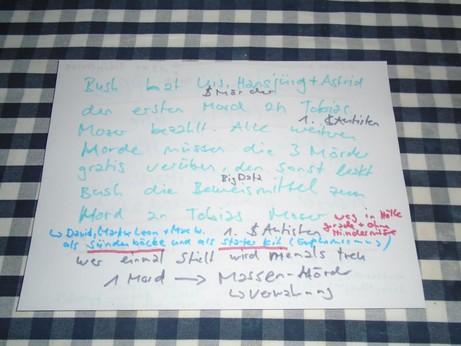 Bush hat Urs, Hansjürg + Astrid
$ Mörder
den ersten Mord an Tobias
1. $ Autisten
Moser bezahlt. Alle weiteren
Morde müssen die 3 Mörder
gratis verüben, den sonst leakt
Big Data
Bush die Beweismittel zum
Mord an Tobias Moser weg in Hölle
↳ David, Marty, Leon + Max W. 1. $ Autisten grade + ohne
als Sündenböcke und als Starter Kit (Euphemismus)
wer einmal stielt wird niemals treu
1 Mord → Massen-Mörder
↳ Verwahrung